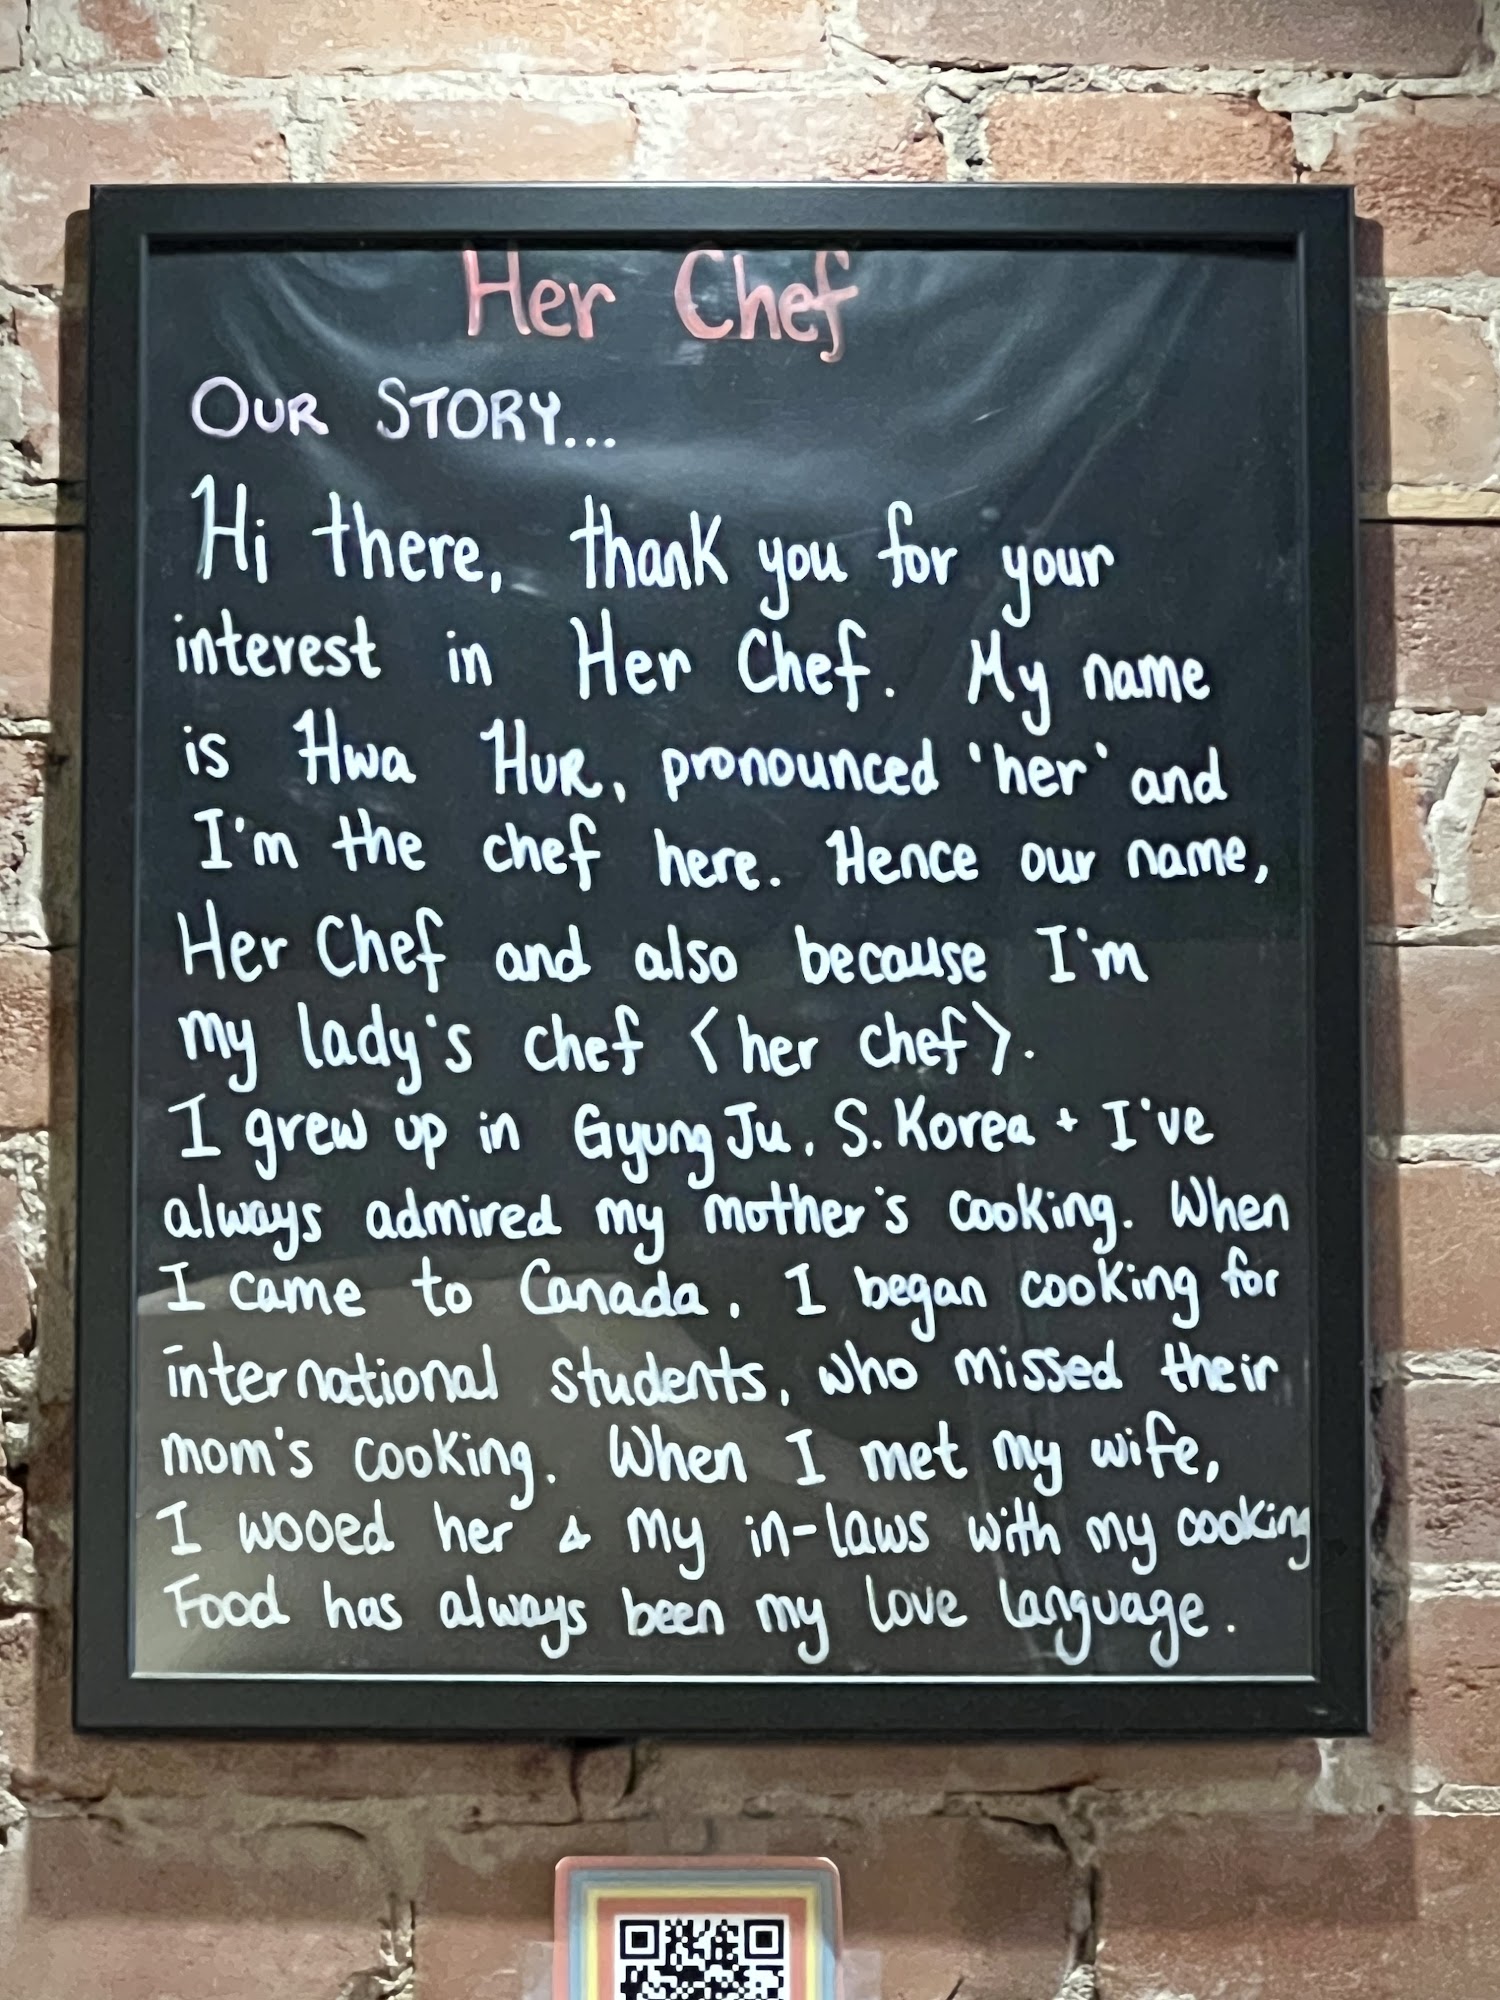 Her Chef
OUR STORY...
Hi there, thank you for your
interest in Her Chef. My name
is Hwa HUR, pronounced 'her' and
I'm the chef here. Hence our name,
Her Chef and also because I'm
my lady's chef <her chef>.
I grew up in GyungJu, S. Korea + I've
always admired my mother's cooking. When
I came to Canada, I began cooking for
international students, who missed their
mom's cooking. When I met my wife,
I wooed her & my in-laws with my cooking
Food has always been my love language.